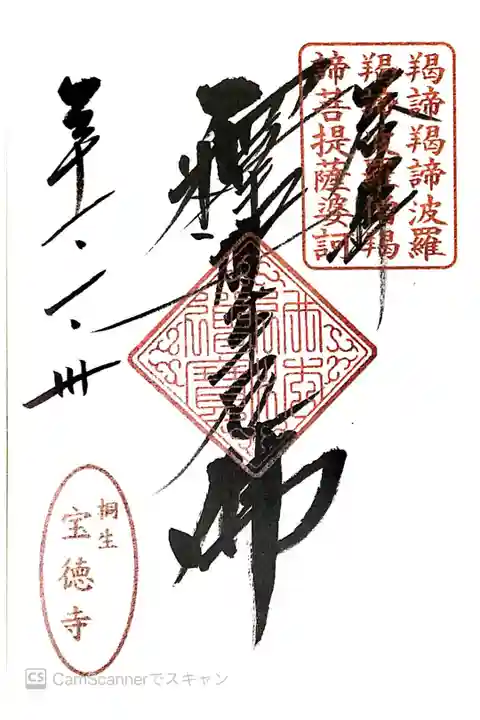 羯諦羯諦波羅
羯諦波羅僧羯
諦菩提薩婆訶
奉拝
釋迦牟尼佛
桐生
宝徳寺
CS CamScannerでスキャン